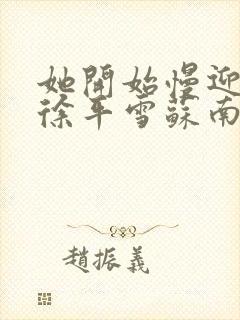 她開始慢迎
徐平雪蘇南
趙振義